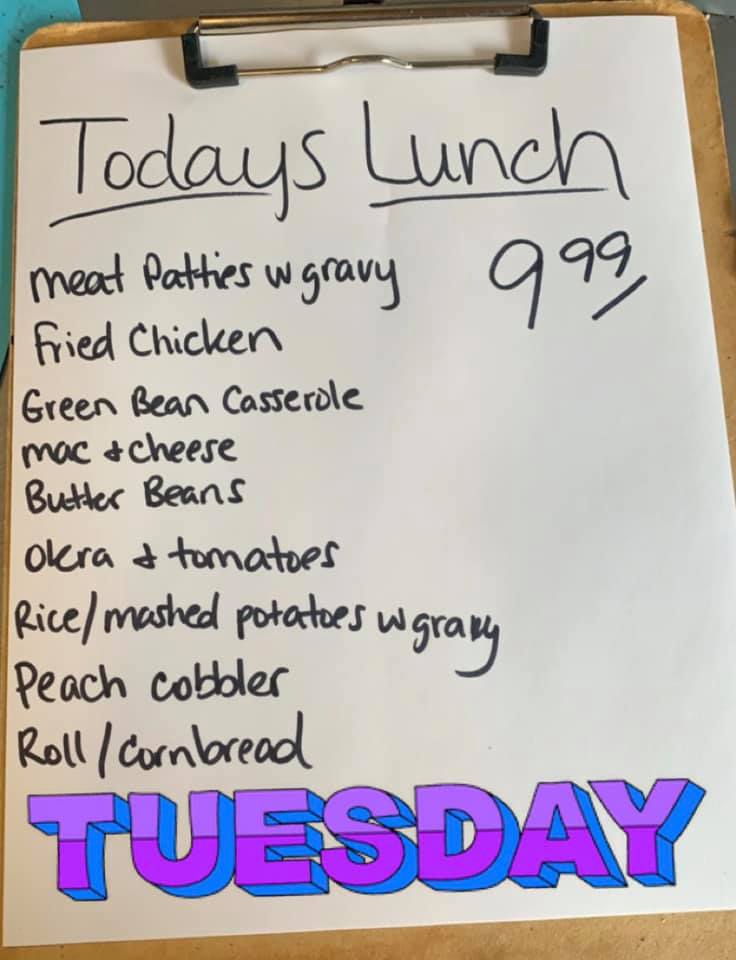 Todays Lunch
meat Patties w gravy 9 99
Fried Chicken
Green Bean Casserole
mac & cheese
Butter Beans
Okra & tomatoes
Rice/mashed potatoes w gravy
Peach cobbler
Roll/Cornbread
TUESDAY